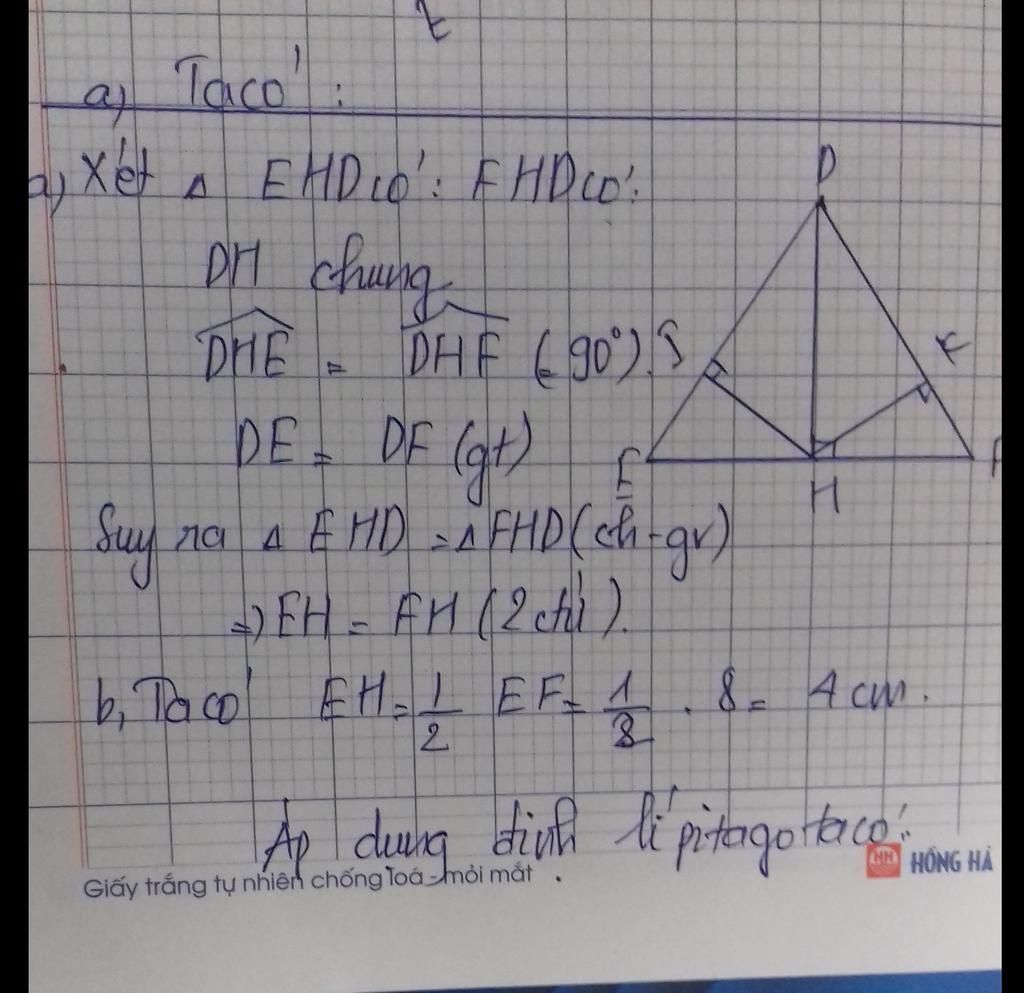 t
a) Ta có :
a) Xét Δ EHD có : FHD có :
D
DH chung
DHE = DHF (= 90°).
K
DE = DF (gt)
E
F
H
Suy ra Δ EHD = Δ FHD (ch - gv)
=> EH = FH (2 chi).
b, Ta có EH = 1/2 EF = 1/8 . 8 = 4 cm .
Áp dung đinh lí pitago ta có :
Giấy trắng tự nhiên chống loá - mỏi mắt .
HH HỒNG HÀ